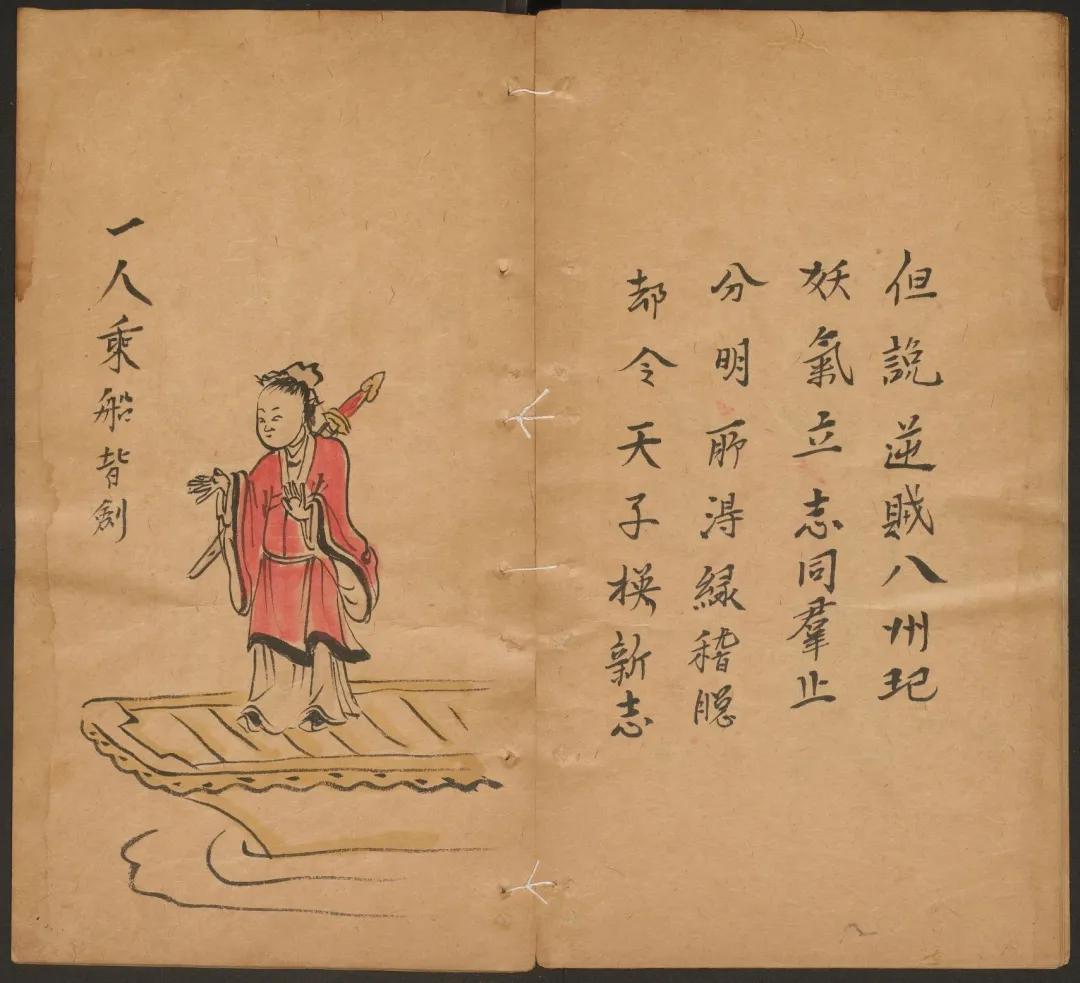 但說逆賊八州玘
妖氣立志同羣止
分明所淂緑稽
却令天子楧新志
一人乘船背劍